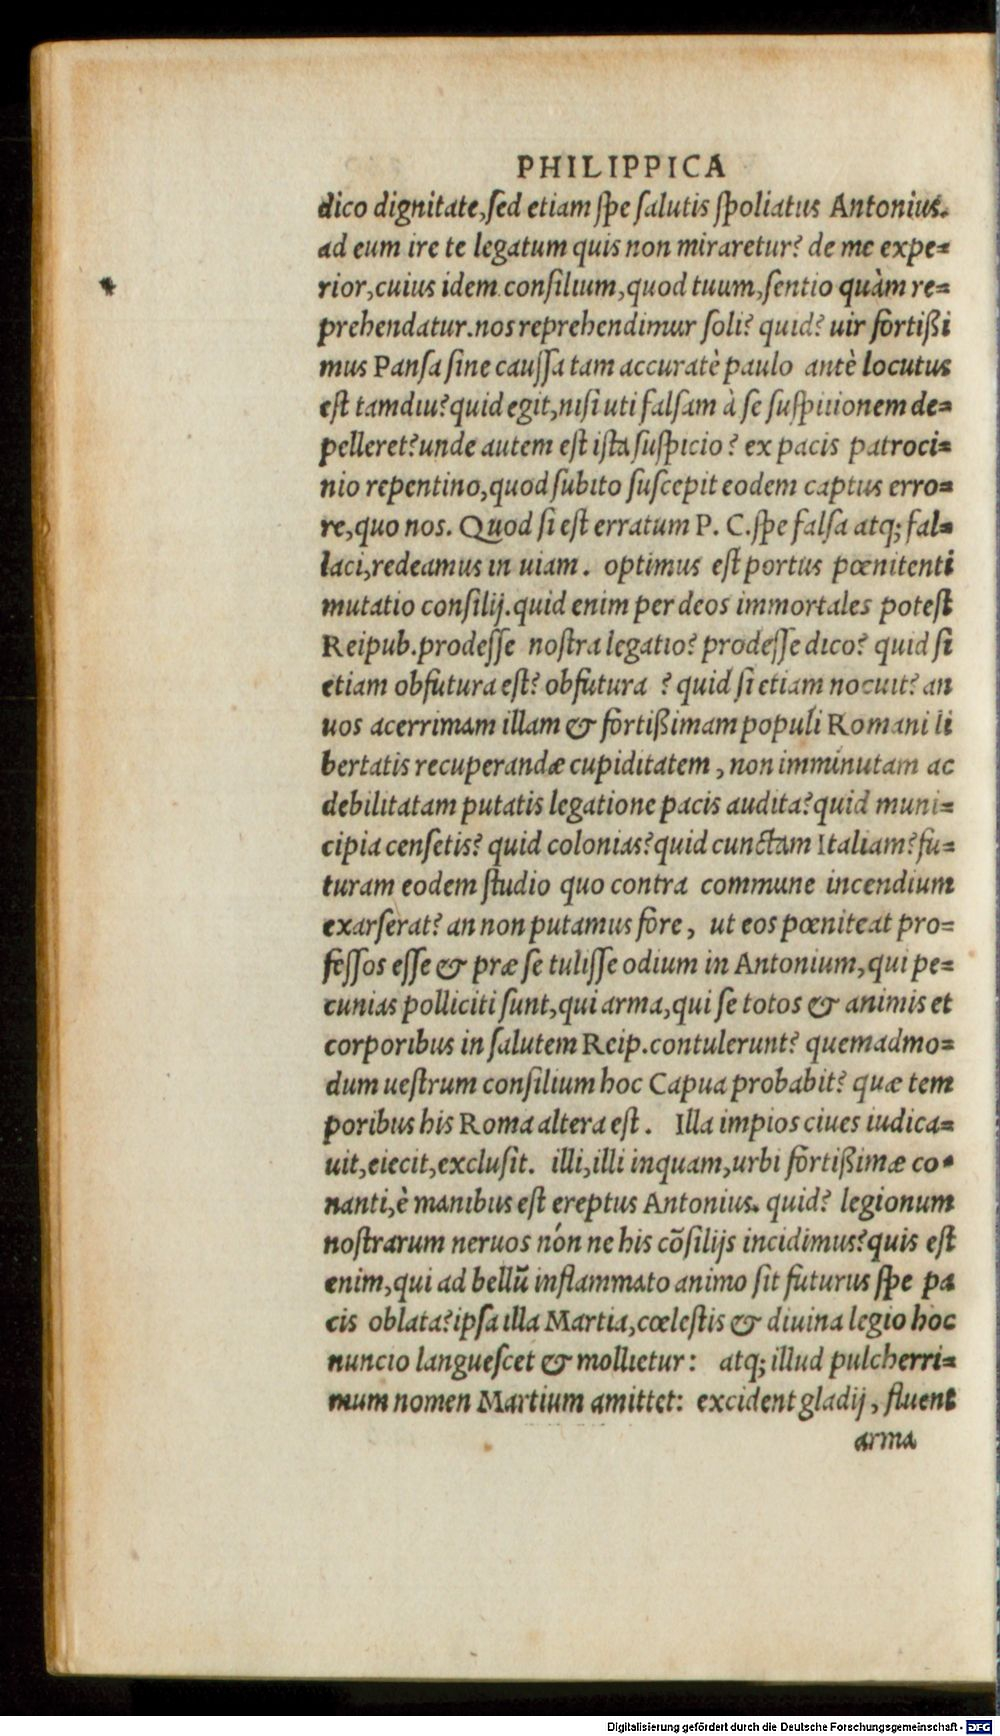 PHILIPPICA
dico dignitate,ſed etiam ſpe ſalutis ſpoliatus Antonius.
ad eum ire te legatum quis non miraretur? de me expe=
rior,cuius idem conſilium,quod tuum,ſentio quàm re=
prehendatur.nos reprehendimur ſoli? quid? uir fortißi
mus Panſa ſine cauſſa tam accuratè paulo antè locutus
eſt tamdiu?quid egit,niſi uti falſam à ſe ſuſpitionem de=
pelleret?unde autem eſt iſta ſuſpicio? ex pacis patroci=
nio repentino,quod ſubito ſuſcepit eodem captus erro=
re,quo nos. Quod ſi eſt erratum P. C.ſpe falſa atq; fal=
laci,redeamus in uiam. optimus eſt portus pœnitenti
mutatio conſilij.quid enim per deos immortales poteſt
Reipub.prodeſſe noſtra legatio? prodeſſe dico? quid ſi
etiam obfutura eſt? obfutura ? quid ſi etiam nocuit? an
uos acerrimam illam & fortißimam populi Romani li
bertatis recuperandæ cupiditatem, non imminutam ac
debilitatam putatis legatione pacis audita?quid muni=
cipia cenſetis? quid colonias?quid cunctam Italiam?fu=
turam eodem ſtudio quo contra commune incendium
exarſerat? an non putamus fore, ut eos pœniteat pro=
feſſos eſſe & præ ſe tuliſſe odium in Antonium,qui pe=
cunias polliciti ſunt,qui arma,qui ſe totos & animis et
corporibus in ſalutem Reip.contulerunt? quemadmo=
dum ueſtrum conſilium hoc Capua probabit? quæ tem
poribus his Roma altera eſt. Illa impios ciues iudica=
uit,eiecit,excluſit. illi,illi inquam,urbi fortißimæ co=
nanti,è manibus eſt ereptus Antonius. quid? legionum
noſtrarum neruos nón ne his cõſilijs incidimus?quis eſt
enim,qui ad bellũ inflammato animo ſit futurus ſpe pa
cis oblata?ipſa illa Martia,cœleſtis & diuina legio hoc
nuncio langueſcet & mollietur: atq; illud pulcherri=
mum nomen Martium amittet: excident gladij, fluent
arma
Digitalisierung gefördert durch die Deutsche Forschungsgemeinschaft - DFG